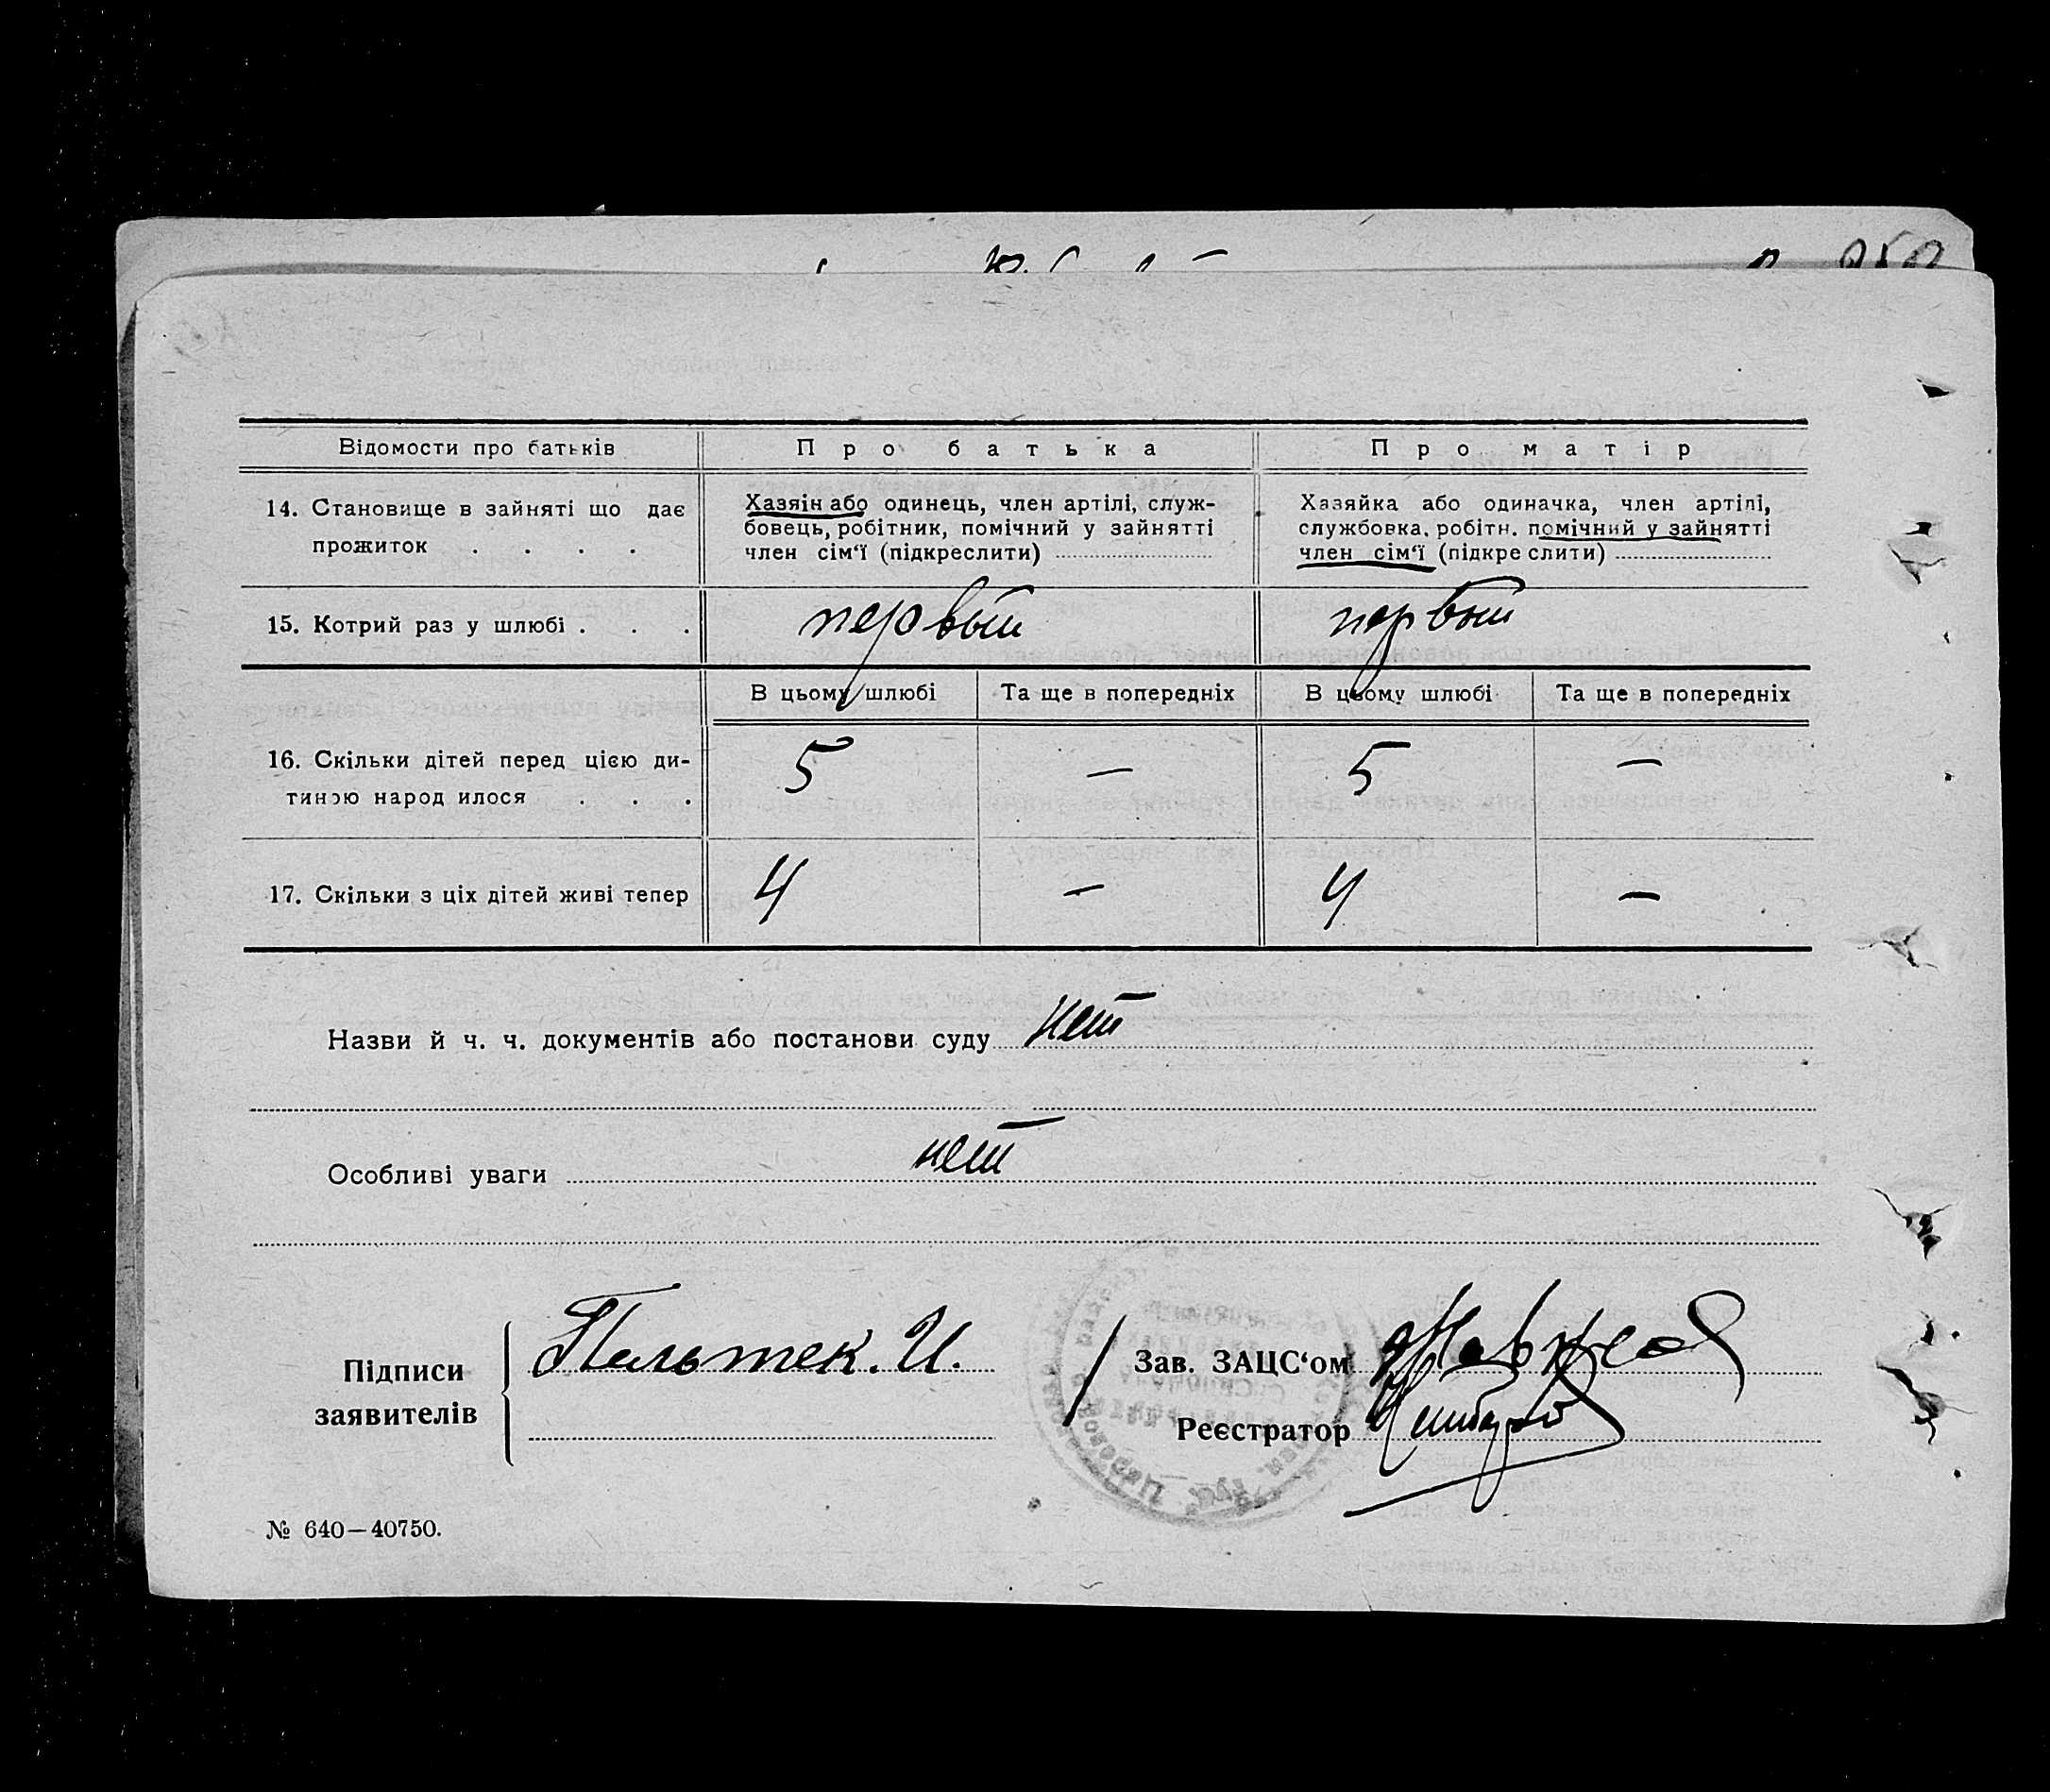 Відомости про батьків
Про батька
Про матір
14. Становище в зайняті що дає
прожиток . . . .
Хазяін або одинець, член артілі, служ-
бовець, робітник, помічний у зайнятті
член сім‘ї (підкреслити)
Хазяйка або одиначка, член артілі,
службовка, робітн. помічний у зайнятті
член сім‘ї (підкре слити)
15. Котрий раз у шлюбі . . .
первый
первый
В цьому шлюбі
Та ще в попередніх
В цьому шлюбі
Та ще в попередніх
16. Скільки дітей перед цією ди-
тиною народ илося . . .
5
—
5
—
17. Скільки з ціх дітей живі тепер
4
—
4
—
Назви й ч. ч. документів або постанови суду нет
Особливі уваги нет
Підписи
заявителів
Пальтек. И.
Зав. ЗАЦС‘ом
Реєстратор
№ 640—40750.